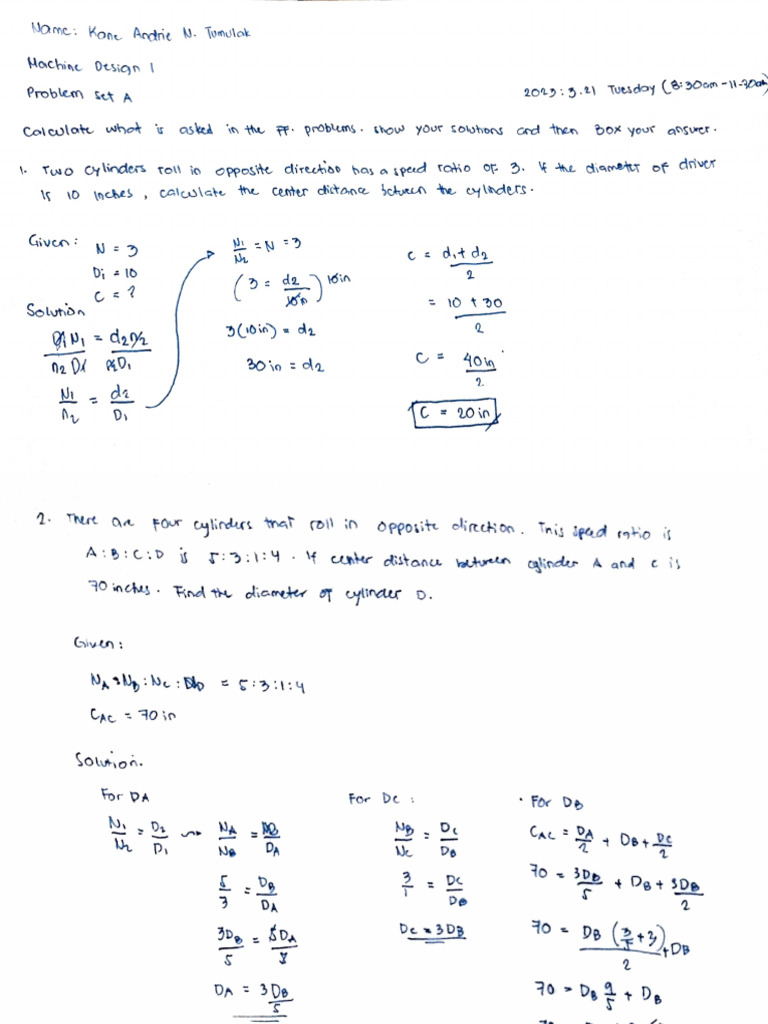 Name: Kane Andrie N. Tumulak
Machine Design 1
Problem Set A
2023.3.21 Tuesday (8:30am-11:30am)
Calculate what is asked in the ff. problems. Show your solutions and then Box your answer.
1. Two cylinders roll in opposite direction has a speed ratio of 3. If the diameter of driver
is 10 inches, calculate the center distance between the cylinders.
Given: N = 3
Di = 10
C = ?
Solution
D1 N1 = d2 n2
n2 D1 n2 D1
N1/n2 = d2/D1
N1/N2 = N = 3
(3 = d2/10in) 10in
3(10in) = d2
30in = d2
C = d1 + d2 / 2
= 10 + 30 / 2
C = 40in / 2
C = 20in
2. There are four cylinders that roll in opposite direction. This speed ratio is
A:B:C:D is 5:3:1:4. If center distance between cylinder A and C is
70 inches. Find the diameter of cylinder D.
Given:
NA:NB:NC:ND = 5:3:1:4
CAC = 70in
Solution.
For DA
N1/N2 = D2/D1 → NA/NB = DB/DA
5/3 = DB/DA
3DB/5 = 5DA/5
DA = 3DB/5
For DC:
NB/NC = DC/DB
3/1 = DC/DB
DC = 3DB
• For DB
CAC = DA/2 + DB + DC/2
70 = 3DB/5 + DB + 3DB/2
70 = DB (3/5 + 3)/2 + DB
70 = DB 9/5 + DB